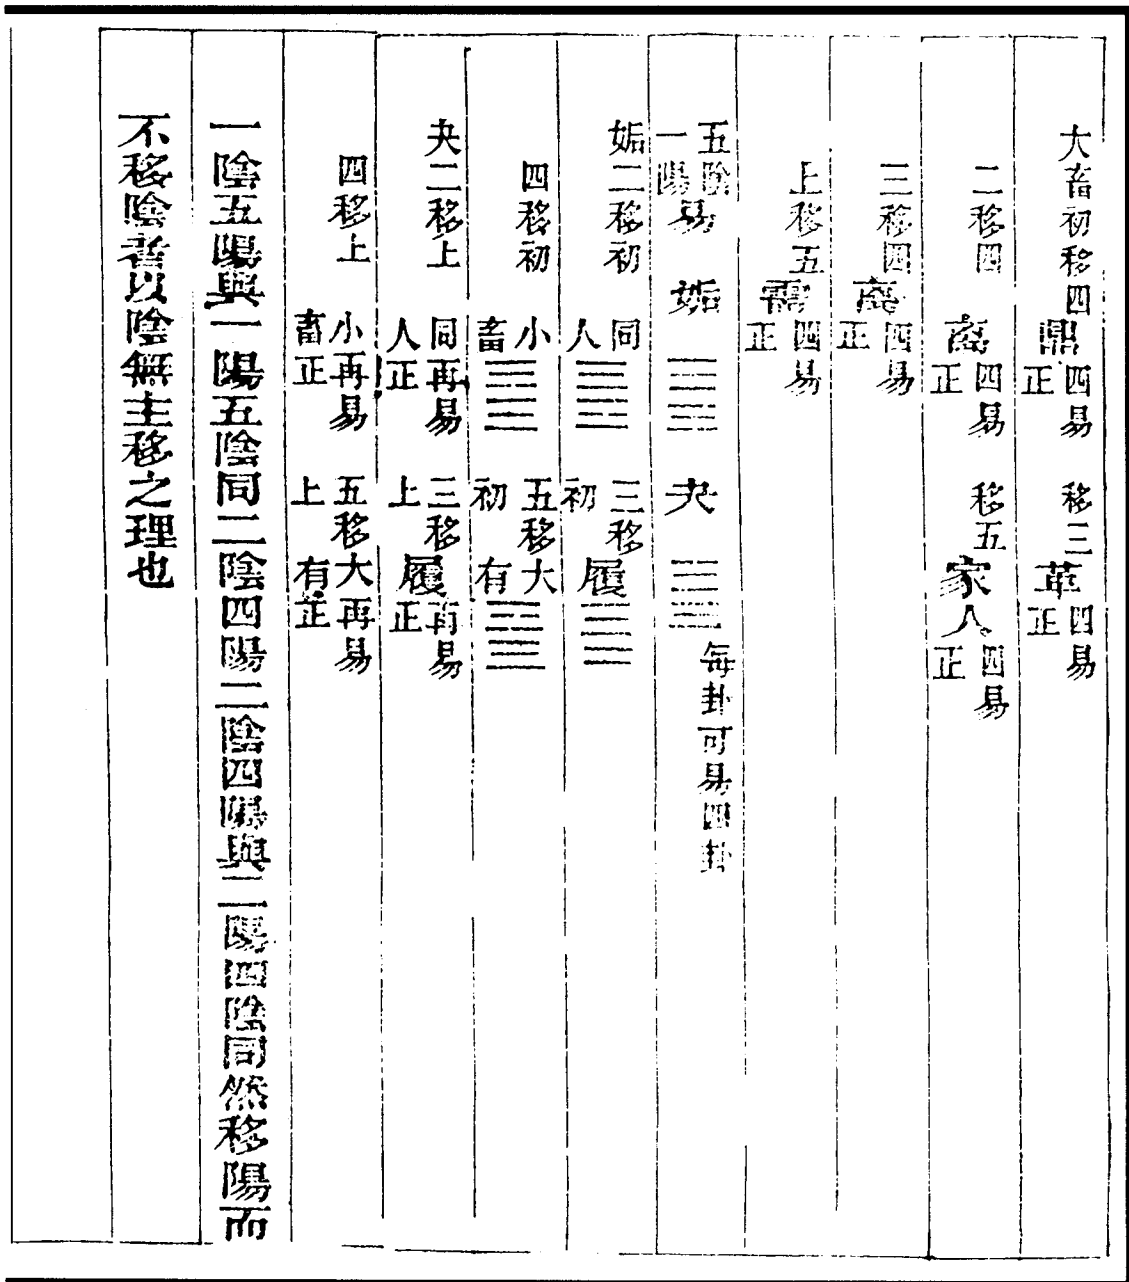 大畜初移四鼎四易正 移三革四易正
二移四离四易正 移五家人四易正
三移四离四易正
上移五需四易正
五陰一陽易 姤 夬 每卦可易四卦
姤二移初同人 三移初履
四移初小畜 五移初大有
夬二移上同人再易正 三移上履再易正
四移上小畜再易正 五移上大有再易正
一陰五陽與一陽五陰同二陰四陽二陰四陽與二陽四陰同然移陽而
不移陰者以陰無主移之理也